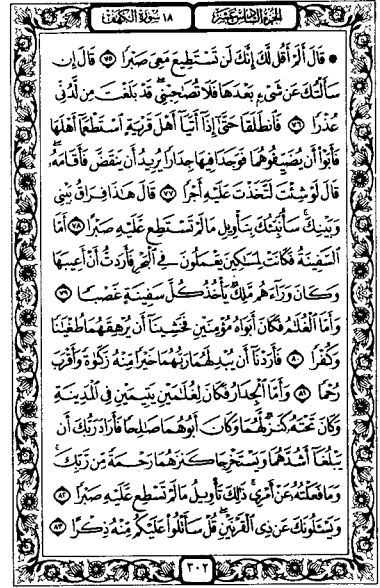 الجزء السادس عشر ١٨ سورة الكهف
۞ قَالَ أَلَمْ أَقُل لَّكَ إِنَّكَ لَن تَسْتَطِيعَ مَعِىَ صَبْرًا ٧٥ قَالَ إِن
سَأَلْتُكَ عَن شَىْءٍۭ بَعْدَهَا فَلَا تُصَٰحِبْنِى ۖ قَدْ بَلَغْتَ مِن لَّدُنِّى
عُذْرًا ٧٦ فَٱنطَلَقَا حَتَّىٰٓ إِذَآ أَتَيَآ أَهْلَ قَرْيَةٍ ٱسْتَطْعَمَآ أَهْلَهَا
فَأَبَوْا۟ أَن يُضَيِّفُوهُمَا فَوَجَدَا فِيهَا جِدَارًا يُرِيدُ أَن يَنقَضَّ فَأَقَامَهُۥ ۖ
قَالَ لَوْ شِئْتَ لَتَّخَذْتَ عَلَيْهِ أَجْرًا ٧٧ قَالَ هَٰذَا فِرَاقُ بَيْنِى
وَبَيْنِكَ ۚ سَأُنَبِّئُكَ بِتَأْوِيلِ مَا لَمْ تَسْتَطِع عَّلَيْهِ صَبْرًا ٧٨ أَمَّا
ٱلسَّفِينَةُ فَكَانَتْ لِمَسَٰكِينَ يَعْمَلُونَ فِى ٱلْبَحْرِ فَأَرَدتُّ أَنْ أَعِيبَهَا
وَكَانَ وَرَآءَهُم مَّلِكٌ يَأْخُذُ كُلَّ سَفِينَةٍ غَصْبًا ٧٩
وَأَمَّا ٱلْغُلَٰمُ فَكَانَ أَبَوَاهُ مُؤْمِنَيْنِ فَخَشِينَآ أَن يُرْهِقَهُمَا طُغْيَٰنًا
وَكُفْرًا ٨٠ فَأَرَدْنَآ أَن يُبْدِلَهُمَا رَبُّهُمَا خَيْرًا مِّنْهُ زَكَوٰةً وَأَقْرَبَ
رُحْمًا ٨١ وَأَمَّا ٱلْجِدَارُ فَكَانَ لِغُلَٰمَيْنِ يَتِيمَيْنِ فِى ٱلْمَدِينَةِ
وَكَانَ تَحْتَهُۥ كَنزٌ لَّهُمَا وَكَانَ أَبُوهُمَا صَٰلِحًا فَأَرَادَ رَبُّكَ أَن
يَبْلُغَآ أَشُدَّهُمَا وَيَسْتَخْرِجَا كَنزَهُمَا رَحْمَةً مِّن رَّبِّكَ ۚ
وَمَا فَعَلْتُهُۥ عَنْ أَمْرِى ۚ ذَٰلِكَ تَأْوِيلُ مَا لَمْ تَسْطِع عَّلَيْهِ صَبْرًا ٨٢
وَيَسْـَٔلُونَكَ عَن ذِى ٱلْقَرْنَيْنِ ۖ قُلْ سَأَتْلُوا۟ عَلَيْكُم مِّنْهُ ذِكْرًا ٨٣
٣٠٢